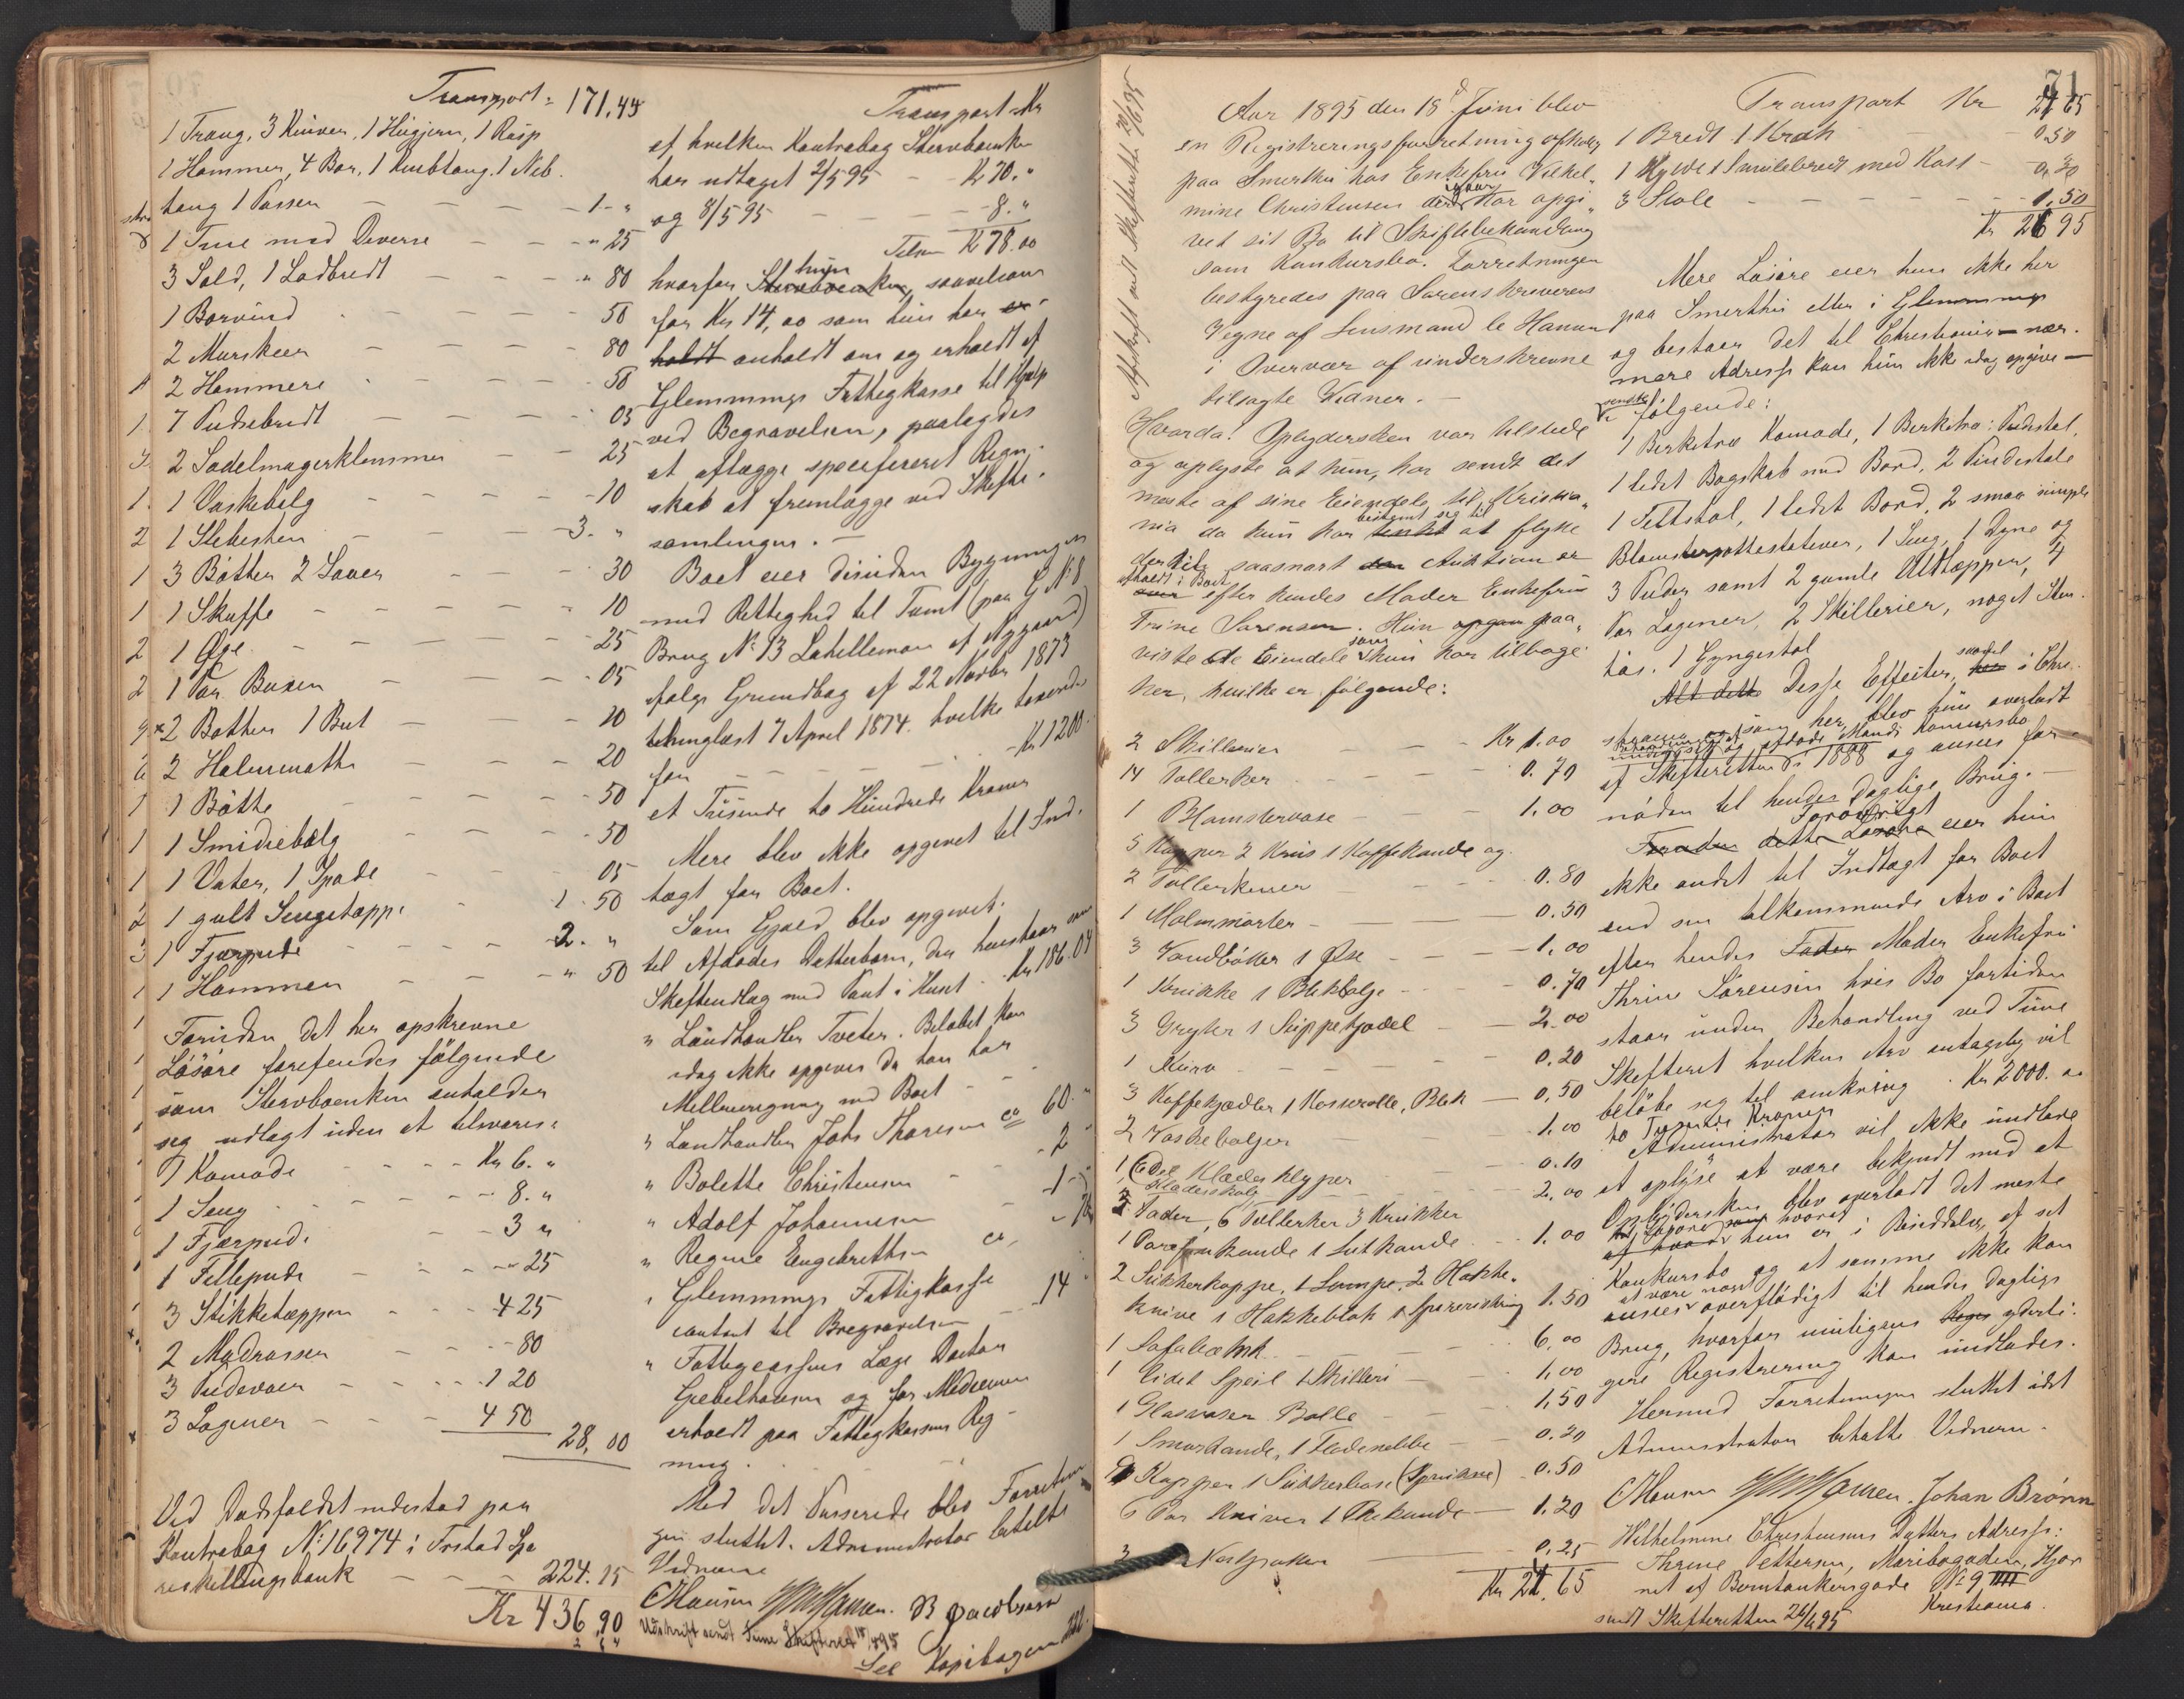 Transport = 171,44
1 Trang, 3 Kniver, 1 Hugjern, 1 Rasp
1 Hammer, 4 Bor, 1 Knibtang 1 Neb
tang 1 Passer - - - 1- "
1 Tine med Diverse - - " 25
3 Sold, 1 Lodbredt - - " 80
1 Borvind - - - 50
2 Murskeer - - - 80
2 Hammere - - - 50
7 Pudsebredt - - - 05
2 Sadelmagerklemmer - - 25
1 Vaskebalg - - - 10
1 Slibesten - - - 3. "
3 Bøtter 2 Sauer - - - 30
1 Skuffe - - - 10
1 Øxe - - - 25
1 Par Buxer - - - 05
2 Bøtter 1 But - - - 20
2 Halmmatter - - - 20
1 Bøtte - - - 50
1 Smidiebælg - - - 50
1 Vater, 1 Spade - - - 05
1 gult Sengetæppe - 1.50
1 Fjærpude - - - 2. "
1 Hammer - - - " 50
Foruden det her opskrevne
Løsøre forefindes følgende
som Stervboenken anholder
sig udlagt uden at tilsvares:
1 Komode - - - Kr 6. "
1 Seng - - - 8. "
1 Fjærpude - - 3 "
1 Fillepude - - - " 25
3 Stikketæpper - - - 4 25
2 Madrasser - - - 80
3 Pudevaer - - - 1 20
3 Lagener - - - 4 50
28,00
Ved Dødsfaldet indestod paa
Kontrabog No 16974 i Frstad Spa
reskillingsbank - - - 224.25
Kr 436,90
Transport Kr
af hvilken Kontrabog Stervboenken
har udtaget 2/5 95 - - Kr 70. "
og 8/5 95 - - - 8. "
Tilsm Kr 78.00
hun
hvorfor Stervboenken, saavelsom
for Kr 14,00 som hun har er
holdt anholdt om og erholdt af
Glemminge Fattigkasse til Hjælp
ved Begravelsen, paalagdes
at aflægge specificeret Regn-
skab at fremlægge ved Skifte-
samlingen. -
Boet eier desuden Bygningen
med Rettighed til Tomt (paa G No 8
Brug No 13 Labellemoen af Nygaard)
ifølge Grundbog af 22 Novbr 1873
thinglæst 7 April 1874. hvilke taxeredes
for - - - Kr 1200.
et Tusinde to Hundrede Kroner
Mere blev ikke opgivet til Ind-
tægt for Boet.
Som Gjæld blev opgivet:
til Afdødes Datterbarn, der henstaar som
Skifteudlæg med Pant i Huset - Kr 186.04
" Landhandler Tveter. Beløbet kan
idag ikke opgives da han har
Mellemregning med Boet -
" Landhandler Johs Thoresen ca 60. "
" Bolette Christensen - - 2 "
" Adolf Johannesen - - 1 - "
" Regine Engebretsen ca
" Glemminge Fattigkasse
contant til Begravelsen - 14
" Fattigcassens Læge Doctor
Giebelhausen og for Medicin
erholdt paa Fattigkassens Reg-
ning.
Med det Passerede blev Forretnin
gen sluttet. Administrator betalte
Vidnerne
CHansen B Jacobsen
Udskrift sendt Tune Skifteret 18/5 95
See Kopibogen 222.
Afskrift sendt Skifteretten 20/6 95
71
Aar 1895 den 18 de Juni blev
en Registreringsforretning afholdt
paa Smerthu hos Enkefru Vilhel-
igaar
mine Christensen der har opgi-
vet sit Bo til Skiftebehandling
som Konkursbo. Forretningen
bestyredes paa Sorenskriverens
Vegne af Lensmand C Hansen
i Overvær af underskrevne
tilsagte Vidner. -
Hvorda! Opbydersken var tilstede
og oplyste at hun, har sendt det
meste af sine Eiendele til Kristia-
bestemt sig til
nia da hun har tænkt at flytte
derhen saasnart den Auktion er
afholdt i Boet
over efter hendes Moder Enkefru
Trine Sørensen. Hun opgav paa-
som
viste de Eiendele hun har tilbage
her, hvilke er følgende:
2 Skillerier - - - Kr 1.00
14 Tallerker - - - 0.70
1 Blomstervase - - - 1.00
5 Kopper 2 Krus 1 Kaffekande og
2 Tallerkener - - - 0.80
1 Malmmorter - - - 0.50
3 Vandbøtter 1 Øse - - - 1.00
1 Krukke 1 Blikbalje - - - 0.70
3 Gryter 1 Suppekjædel - - 2.00
1 Kurv - - - 0.20
3 Kaffekjædler 1 Kasserolle, Blik - 0.50
2 Vaskebaljer - - - 1.00
1 Del Klædesklyper - - - 0.10
Fader, 6 Tallerker 3 Krukker - 2.00
1 Parafinkande 1 Litkande - 1.00
2 Sukkerkoppe, 1 Lampe, 2 Hakke-
knive 1 Hakkebræt 1.50
1 Sofabænk - - - 6.00
1 lidet Speil 1 Skilleri - - 1.00
1 Glasvase Bolle - - - 1.50
1 Smørkande, 1 Flødenebbe - - 0.20
Kopper 1 Sukkerbøsse (Sprukne) - 0.50
6 Par Kniver 1 Thekande - 1.20
3 - - - 0.25
Kr 24.65
Transport Kr 24 65
1 Bredt 1 Krak - - 0.50
1 Hylde 1 Smulebredt med Kost - 0,30
3 Stole - - - 1.50
Kr 26 95
Mere Løsøre eier hun ikke her
paa Smerthu eller i Glemminge
og bestaar det til Christiania - nær-
mere Adresse kan hun ikke idag opgive -
sendte
følgende:
1 Birketræ Komode, 1 Birketræ: Pudestol,
1 lidet Bogskab med Bord, 2 Pindestole
1 Feltstol, 1 lidet Bord, 2 smaa simple
Blomsterpottestativer, 1 Seng, 1 Dyne og
3 Puder samt 2 gamle Uldtæpper, 4
Par Lagener, 2 Skillerier, noget Sten-
tøi. 1 Gyngestol
saavel
Alt dette Disse Effecter, her i Chri-
stiania og som her, blev hun overladt
af Skifteretten i 1888 og ansees for
nøden til hendes daglige Brug. -
Forøvrigt
Foruden dette Løsøre eier hun
ikke andet til Indtægt for Boet
end sin tilkommende Arv i Boet
efter hendes Fader Moder Enkefru
Thrine Sørensen hvis Bo fortiden
staar under Behandling ved Tune
Skifteret hvilken Arv antagelig vil
beløbe sig til omkring - Kr 2000.00
to Tusinde Kroner
Administrator vil ikke undlade
at oplyse at være bekjendt med at
Opbydersken blev overladt det meste
af hvad hun er i Besiddelse, af sit
Konkursbo og at samme ikke kan
at være noget
ansees overflødigt til hendes daglige
Brug, hvorfor muligens yderli-
gere Registrering kan undlades.
Hermed Forretningen sluttet idet
Administrator betalte Vidnerne.
CHansen Johan Brønn
Wilhelmine Christensens Datters Adresse:
Thrine Pettersen, Maribogaden, Hjør
net af Bernt Ankersgade No 9
Kristiania.
sendt Skifteretten 26/6 95